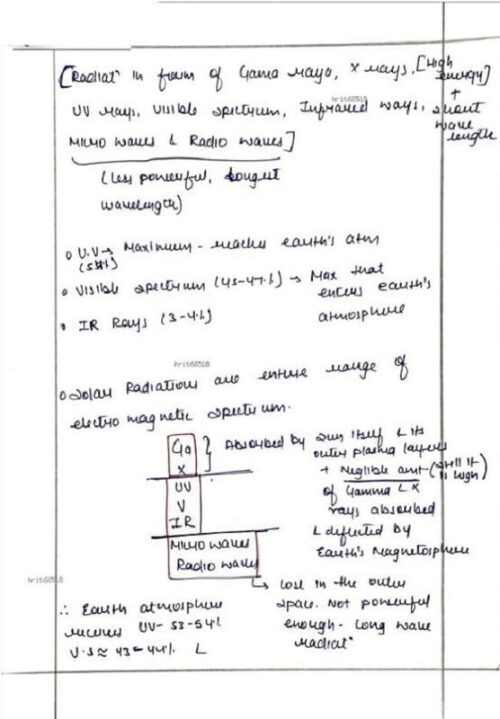 [Radiatⁿ in form of Gama rays, X rays, [High energy] + short wave length
UV rays, Visible spectrum, Infrared rays,
hrit66518
Micro waves & Radio waves]
(less powerful, longest
wavelength)
• U.V → Maximum - reaches earth's atm
(53%)
• Visible spectrum (45-47%) → Max that
enters earth's
atmosphere
• IR Rays (3-4%)
hrit66518
• Solar Radiations are entire range of
electro magnetic spectrum.
Ga
X
} Absorbed by sun itself & its
outer plasma layers
+ Neglible amt (still it is high)
of Gamma & X
rays absorbed
& deflected by
Earth's Magnetosphere
UV
V
IR
Micro waves
Radio waves
hrit66518
↳ lost in the outer
space. Not powerful
enough - long wave
radiatⁿ
∴ Earth atmosphere
receives UV- 53-54%
V.S ≈ 43-44% &